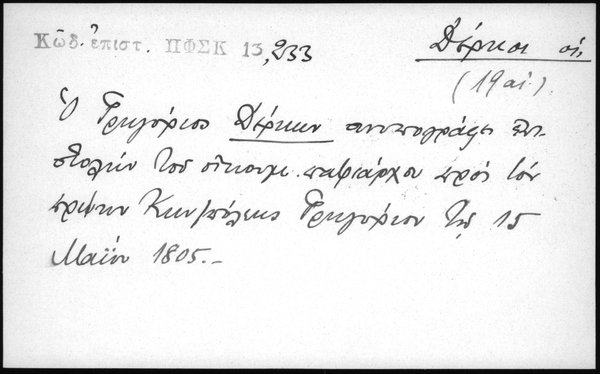 Κῶδ. ἐπιστ. ΠΦΣΚ 13,233
Δέρκοι οἱ,
(19 αἰ.).
Ὁ Γρηγόριος Δέρκων συνυπογράφει ἐπι-
στολὴν τοῦ οἰκουμ. πατριάρχου πρὸς τὸν
πρώην Κων/πόλεως Γρηγόριον τῇ 15
Μαΐου 1805.-